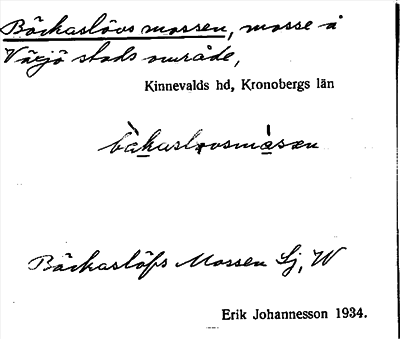 Bäckaslövs mossen, mosse å
Växjö stads område,
Kinnevalds hd, Kronobergs län
Bäckaslöfs Mossen Lj, W
Erik Johannesson 1934.